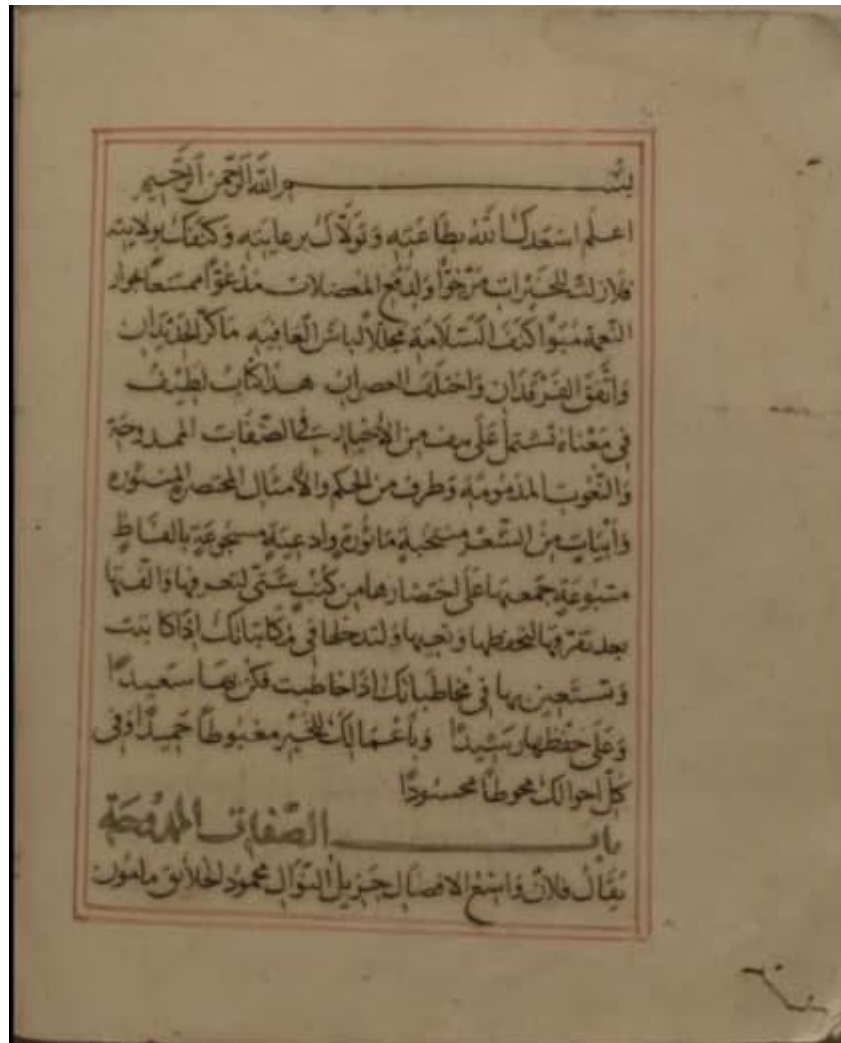 بسم الله الرحمن الرحيم
اعلم اسعدك الله بطاعته وتولاك برعايته وكنفك بولايته
فلا زلت للخيرات مرجوا ولدفع المعضلات مدعوا ممتعا بجوار
النعمة مبوا كنف السلامة مجللا لباس العافية ما كر الجديدان
واتفق الفرقدان واختلف العصران هذا كتاب لطيف
في معناه تشتمل على من الأخبار في الصفات الممدوحة
والنعوت المذمومة وطرف من الحكم والأمثال المختصرة المنثورة
وأبيات من الشعر منتخبة مأثورة وادعية مسجوعة بالفاظ
متبوعة جمعتها على اختصارها من كتب شتى لتعرفها والفتها
بعد تفرقها لتحفظها وتعيها ولتدخلها في مكاتباتك اذا كاتبت
وتستعين بها في مخاطباتك اذا خاطبت فكن بها سعيدا
وعلى حفظها رشيدا وباعمالك للخير مغبوطا حميدا وفي
كل احوالك محوطا محسودا
باب الصفات الممدوحة
يقال فلان واسع الافضال جزيل النوال محمود الخلائق مامون